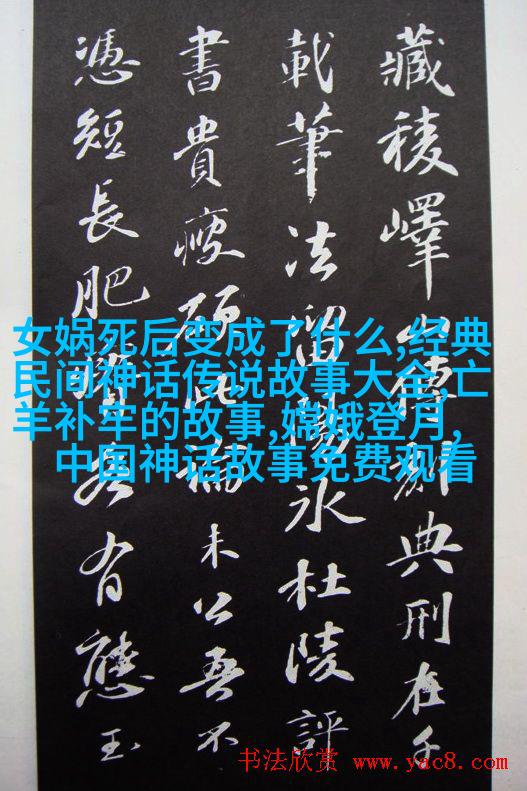 藏稜嶧山傳刻典刑在千
載筆法留陽冰杜陵評
書貴瘦硬此論未公吾不
憑短長肥瘠各有態玉
女娲死后变成了什么,经典
民间神话传说故事大全,亡
羊补牢的故事,嫦娥登月,
中国神话故事免费观看
书法欣赏 www.yac8.com